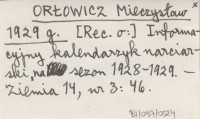 ORŁOWICZ Mieczysław x
1929 g. [Rec. o:] Informa-
cyjny kalendarzyk narciar-
ski na sezon 1928-1929. —
Ziemia 14, nr 3: 46.